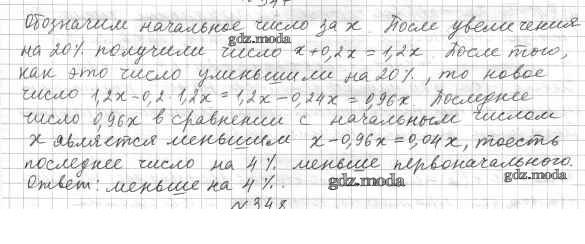 Обозначим начальное число за x. После увеличения
на 20% получили число x+0,2x=1,2x. После того,
gdz.moda
как это число уменьшили на 20%, то новое
число 1,2x-0,2·1,2x=1,2x-0,24x=0,96x. Последнее
число 0,96x в сравнении с начальным числом
x является меньшим x-0,96x=0,04x, тоесть
последнее число на 4% меньше первоначального.
Ответ: меньше на 4%.
gdz.moda
gdz.moda
№348